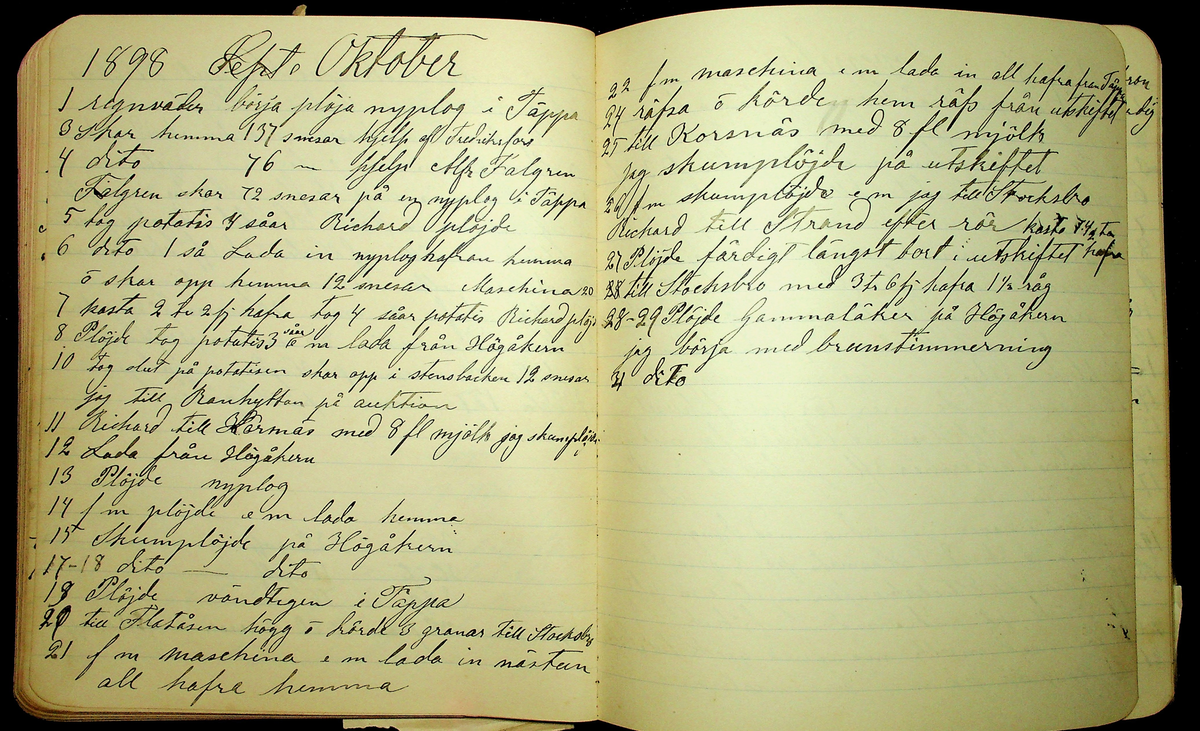 1898 Sept. Oktober
1 regnväder börja plöja nyplog i Täppa
3 Skar hemma 137 snesar hjelp af Fredriksfors
4 dito 76 — hjelp Alfr Falgren
Falgren skar 72 snesar på en nyplog i Täppa
5 tog potatis 7 såar Richard plöjde
6 dito 1 så Lada in nyplog hafran hemma
ö skar opp hemma 12 snesar Maschina 20
7 kasta 2 tr 2 fj hafra tog 4 såar potatis Richard plöjd
8 Plöjde tog potatis 3 såar e m lada från Högåkern
10 tog slut på potatisen skar opp i stensbacken 12 snesar
jag till Ranhyttan på auktion
11 Richard till Harmäs med 8 fl mjölk jag skumplöjde
12 Lada från Högåkern
13 Plöjde nyplog
14 f m plöjde e m lada hemma
15 Skumplöjde på Högåkern
17-18 dito — dito
19 Plöjde vändtegen i Täppa
20 till Flatåsen högg ö körde 3 granar till Stocksbo
21 f m maschina e m lada in nästan
all hafra hemma
22 f m maschina e m lada in all hafra från
24 räfsa ö körde hem räfs från utskiftet
25 till Korsnäs med 8 fl mjölk
jag skumplöjde på utskiftet
26 f m skumplöjde e m jag till Stocksbo
Richard till Strand efter rör kasta hafra
27 Plöjde färdigt längst bort i utskiftet
28 till Stocksbro med 3 tr 6 fj hafra 1½ råg
28-29 Plöjde Gammalåker på Högåkern
jag börja med brunstimmerning
31 dito